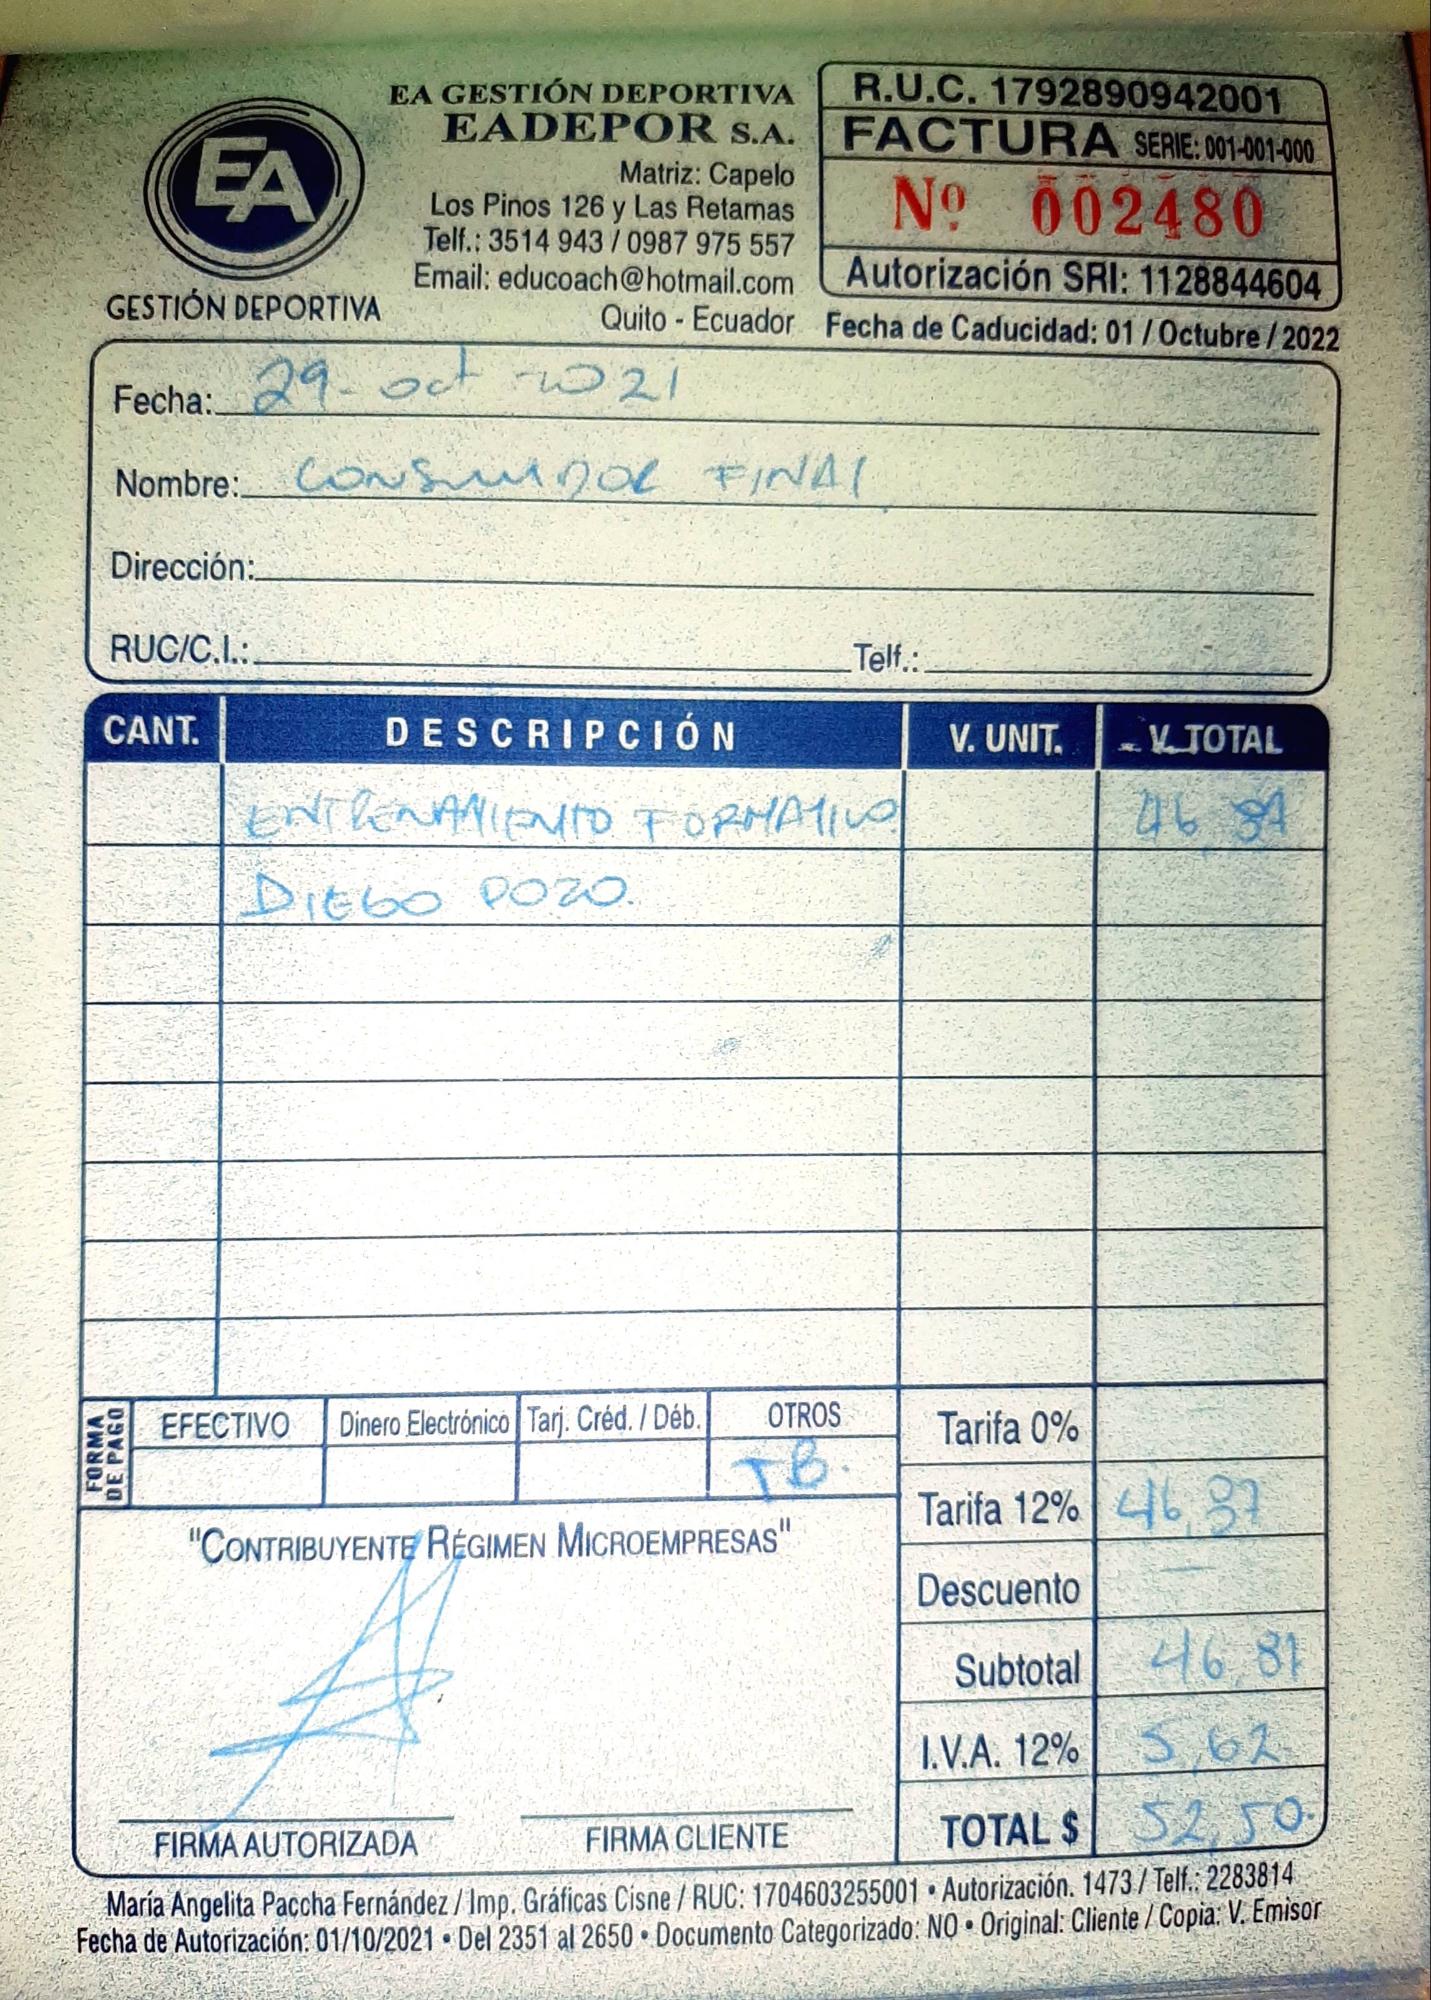 EA
GESTIÓN DEPORTIVA
EA GESTIÓN DEPORTIVA
EADEPOR S.A.
Matriz: Capelo
Los Pinos 126 y Las Retamas
Telf.: 3514 943 / 0987 975 557
Email: educoach@hotmail.com
Quito - Ecuador
R.U.C. 1792890942001
FACTURA SERIE: 001-001-000
Nº 002480
Autorización SRI: 1128844604
Fecha de Caducidad: 01 / Octubre / 2022
Fecha: 29 - oct - 2021
Nombre: CONSUMIDOR FINAL
Dirección:
RUC/C.I.: Telf.:
CANT. DESCRIPCIÓN V. UNIT. V. TOTAL
ENTRENAMIENTO FORMATIVO 46,87
DIEGO POZO.
FORMA DE PAGO
EFECTIVO Dinero Electrónico Tarj. Créd. / Déb. OTROS
TB.
Tarifa 0%
Tarifa 12% 46,87
Descuento —
Subtotal 46,87
I.V.A. 12% 5,62
TOTAL $ 52,50
"CONTRIBUYENTE RÉGIMEN MICROEMPRESAS"
FIRMA AUTORIZADA FIRMA CLIENTE
María Angelita Paccha Fernández / Imp. Gráficas Cisne / RUC: 1704603255001 • Autorización. 1473 / Telf.: 2283814
Fecha de Autorización: 01/10/2021 • Del 2351 al 2650 • Documento Categorizado: NO • Original: Cliente / Copia: V. Emisor